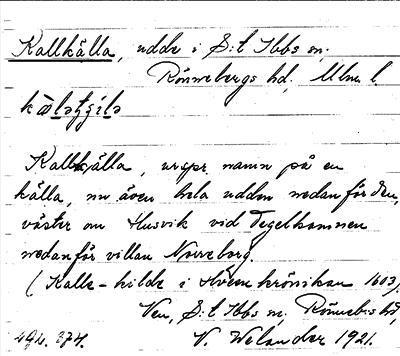 Kallkälla, udde i S:t Ibbs sn.
Rönnebergs hd, Mlm. l.
Kallkälla, urspr. namn på en
källa, nu även hela udden nedanför den,
väster om Husvik vid Tegelhamnen
nedanför villan Norreborg.
(Kalle-kilde i Hveenkrönikan 1603).
Ven, S:t Ibbs sn, Rönnebs hd,
492. 374. V. Welander 1921.